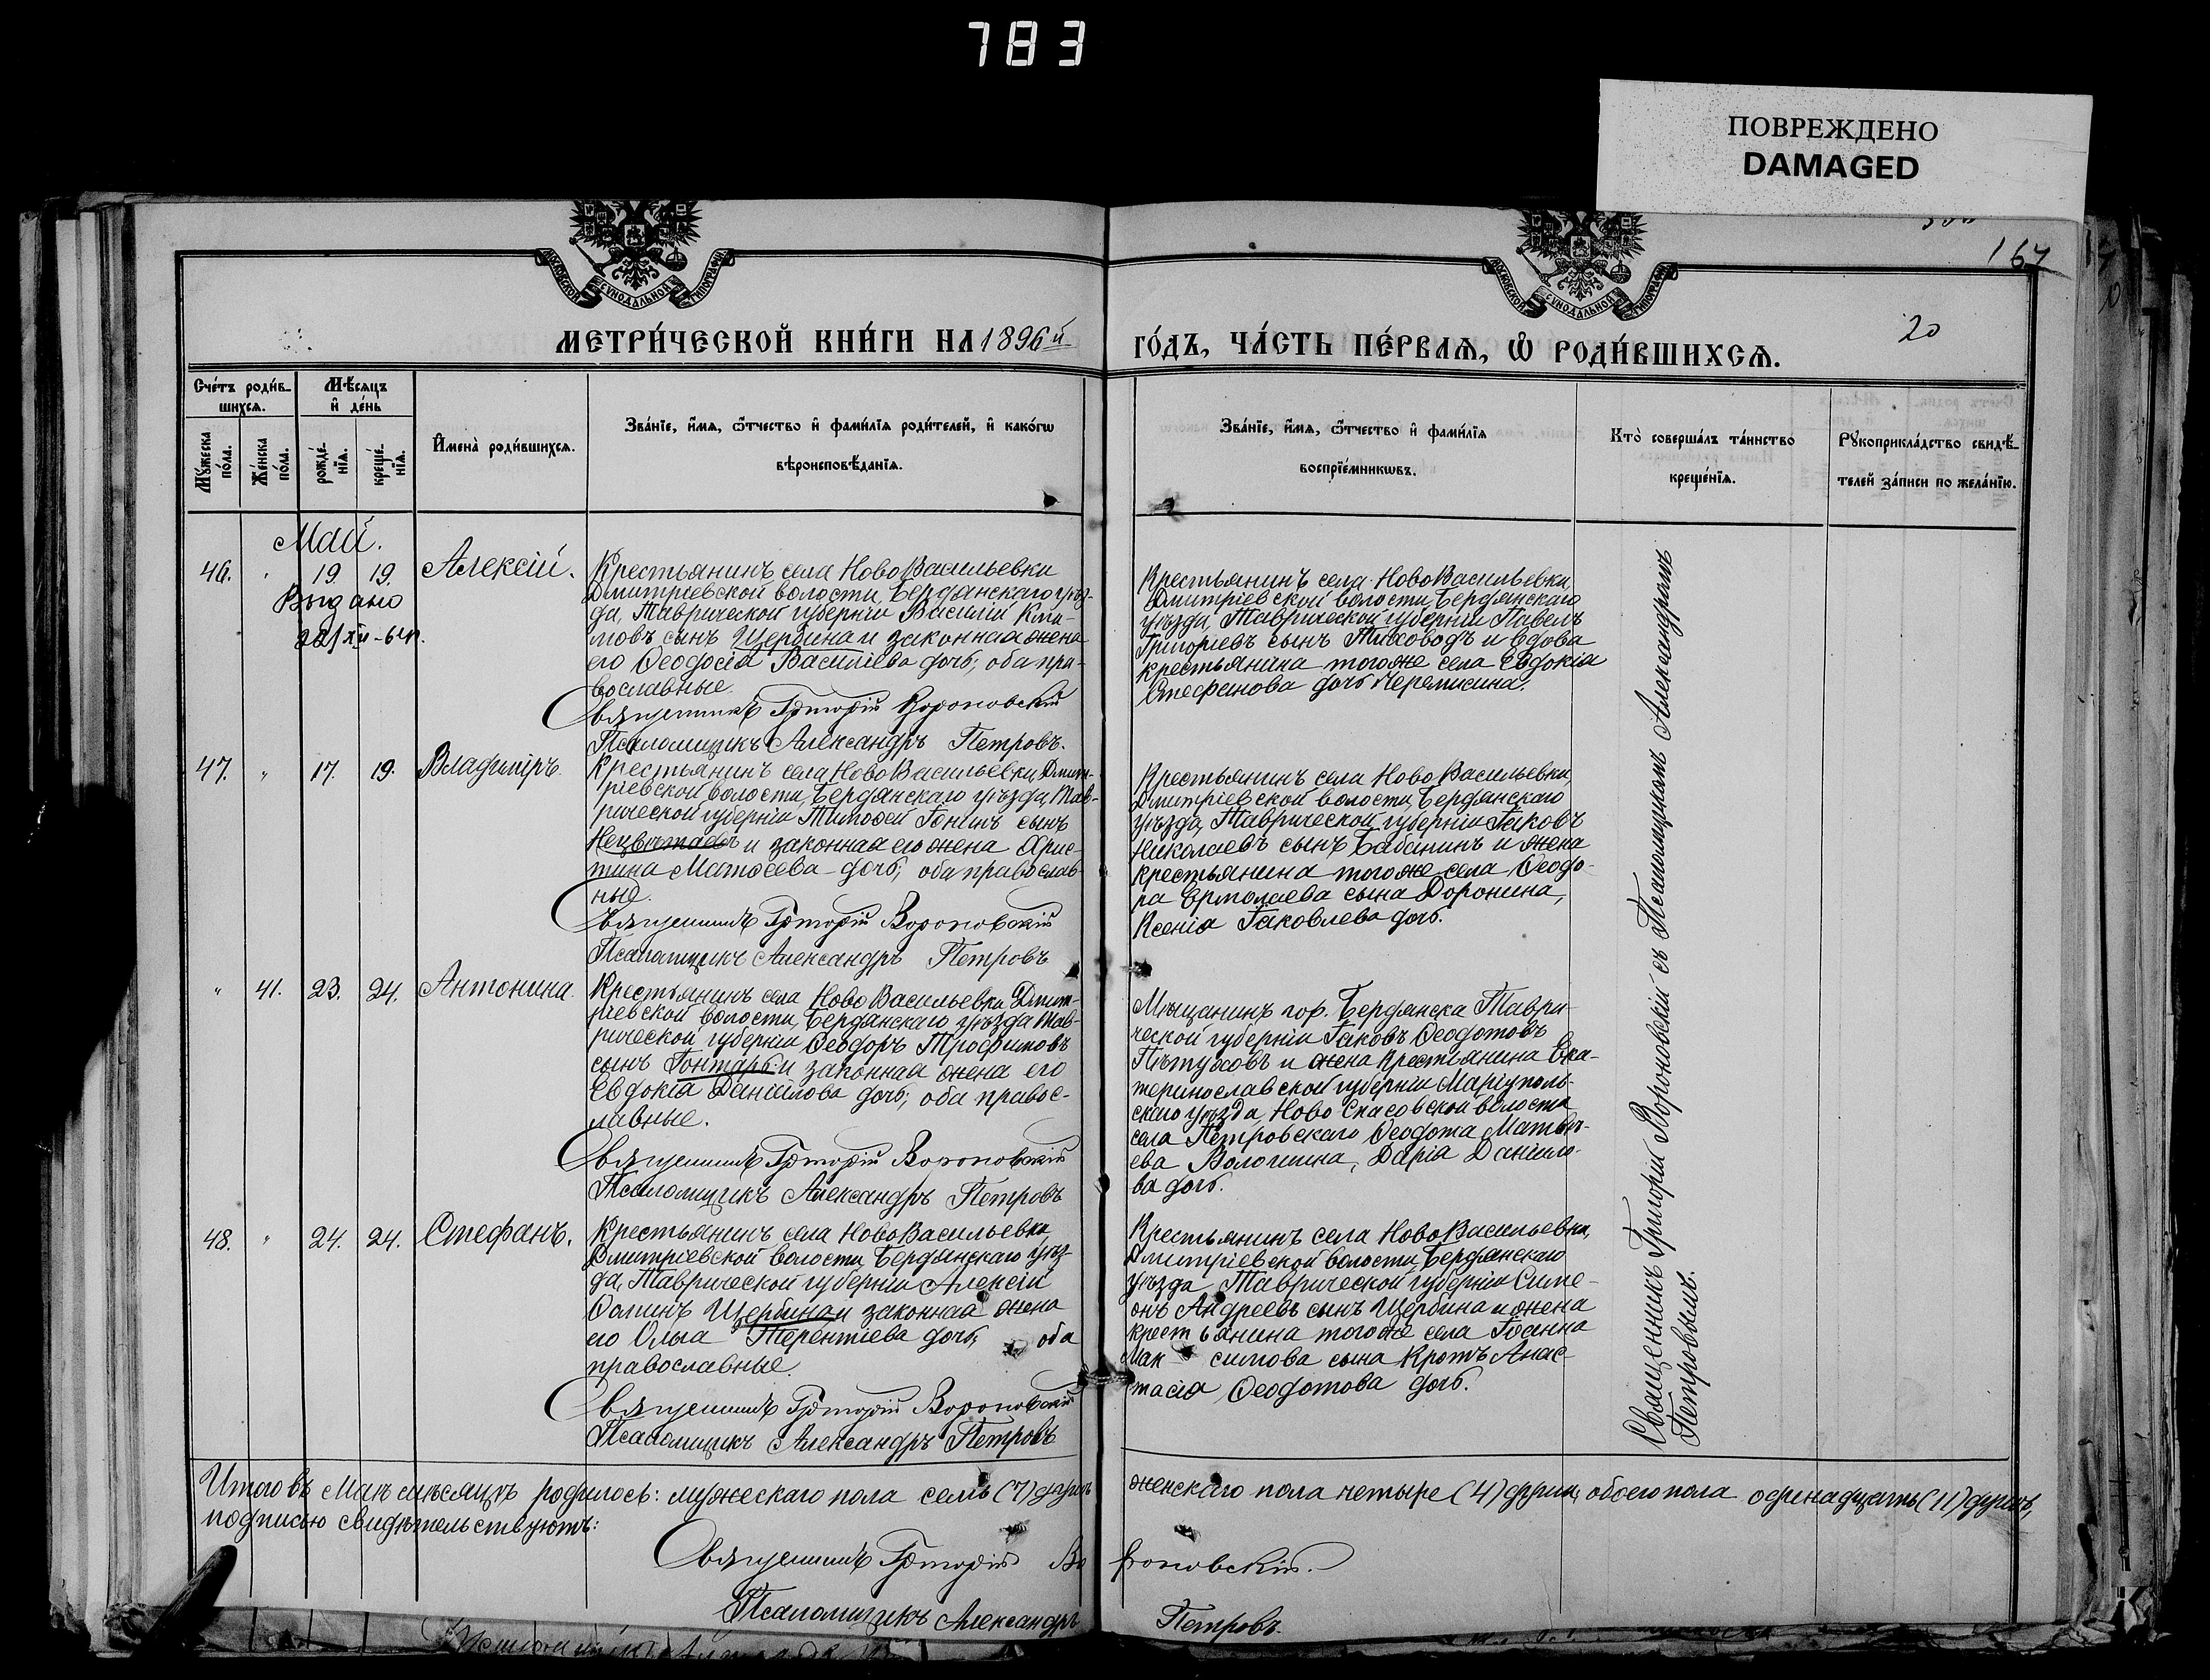 783
ПОВРЕЖДЕНО
DAMAGED
167
20
МОСКОВСКОЙ СѴНОДАЛЬНОЙ ТИПОГРАФІИ
МОСКОВСКОЙ СѴНОДАЛЬНОЙ ТИПОГРАФІИ
МЕТРИ́ЧЕСКОЙ КНИ́ГИ НА 1896й ГО́ДЪ, ЧА́СТЬ ПЕ́РВАѦ, Ѽ РОДИ́ВШИХСѦ.
Сче́тъ роди́в-
шихсѧ.
Мѣ́сяцъ
и҆ де́нь
Мꙋ́жеска по́ла.
Же́нска по́ла.
рожде́-
нїѧ.
креще́-
нїѧ.
И҆мена̀ роди́вшихсѧ.
Зва́нїе, и҆́мѧ, ѻ҆́тчество и҆ фами́лїѧ роди́телей, и҆ како́гѡ
вѣроисповѣ́данїѧ.
Зва́нїе, и҆́мѧ, ѻ҆́тчество и҆ фами́лїѧ
воспрїе́мникѡвъ.
Кто̀ соверша́лъ та́инство
креще́нїѧ.
Рꙋкоприкла́дство свидѣ́-
телей за́писи по жела́нїю.
Май.
46. " 19 19. Алексій.
Выдано
Крестьянинъ села НовоВасильевки
Дмитріевской волости, Бердянскаго уѣз-
да, Таврической губерніи Василій Кли-
мовъ сынъ Щербина и законная жена
его Ѳеодосія Василіева дочь; оба пра-
вославные.
Священникъ Григорій Вороновскій
Псаломщикъ Александръ Петровъ.
Крестьянинъ села НовоВасильевки,
Дмитріевской волости, Бердянскаго
уѣзда, Таврической губерніи Павелъ
Григоріевъ сынъ Тиховодъ и вдова
крестьянина того же села Евдокія
Стефанова дочь Черемисина.
47. " 17. 19. Владиміръ.
Крестьянинъ села НовоВасильевки, Дмит-
ріевской волости, Бердянскаго уѣзда, Тав-
рической губерніи Тимоѳей Іонинъ сынъ
Нецвѣтаевъ и законная его жена Хрис-
тина Матѳеева дочь; оба православ-
ные.
Священникъ Григорій Вороновскій
Псаломщикъ Александръ Петровъ
Крестьянинъ села НовоВасильевки,
Дмитріевской волости, Бердянскаго
уѣзда, Таврической губерніи Іаковъ
Николаевъ сынъ Бабанинъ и жена
крестьянина того же села Ѳеодо-
ра Ермолаева сына Доронина,
Ксенія Іаковлева дочь.
" 41. 23. 24. Антонина.
Крестьянинъ села НовоВасильевки Дмит-
ріевской волости, Бердянскаго уѣзда Тав-
рической губерніи Ѳеодоръ Трофимовъ
сынъ Гонтарь и законная жена его
Евдокія Даніилова дочь; оба правос-
лавные.
Священникъ Григорій Вороновскій
Псаломщикъ Александръ Петровъ
Мѣщанинъ гор. Бердянска Таври-
ческой губерніи Іаковъ Ѳеодотовъ
Пѣтуховъ и жена крестьянина Ека-
теринославской губерніи Маріуполь-
скаго уѣзда, Ново Спасовской волости
села Петровскаго Ѳеодота Матвѣ-
ева Волошина, Дарія Даніило-
ва дочь.
48. " 24. 24. Стефанъ.
Крестьянинъ села НовоВасильевки,
Дмитріевской волости, Бердянскаго уѣз-
да, Таврической губерніи Алексій
Ѳоминъ Щербина и законная жена
его Ольга Терентіева дочь; оба
православные.
Священникъ Григорій Вороновскій
Псаломщикъ Александръ Петровъ
Крестьянинъ села НовоВасильевки,
Дмитріевской волости, Бердянскаго
уѣзда Таврической губерніи Симе-
онъ Андреевъ сынъ Щербина и жена
крестьянина того же села Іоанна
Максимова сына Кротъ Анас-
тасія Ѳеодотова дочь.
Священникъ Григорій Вороновскій съ Псаломщикомъ Александромъ
Петровымъ.
Итого въ Маѣ мѣсяцѣ родилось: мужескаго пола семь (7) душъ женскаго пола четыре (4) души, обоего пола одинадцать (11) душъ,
подписью свидѣтельствуютъ:
Священникъ Григорій Вороновскій.
Псаломщикъ Александръ Петровъ.